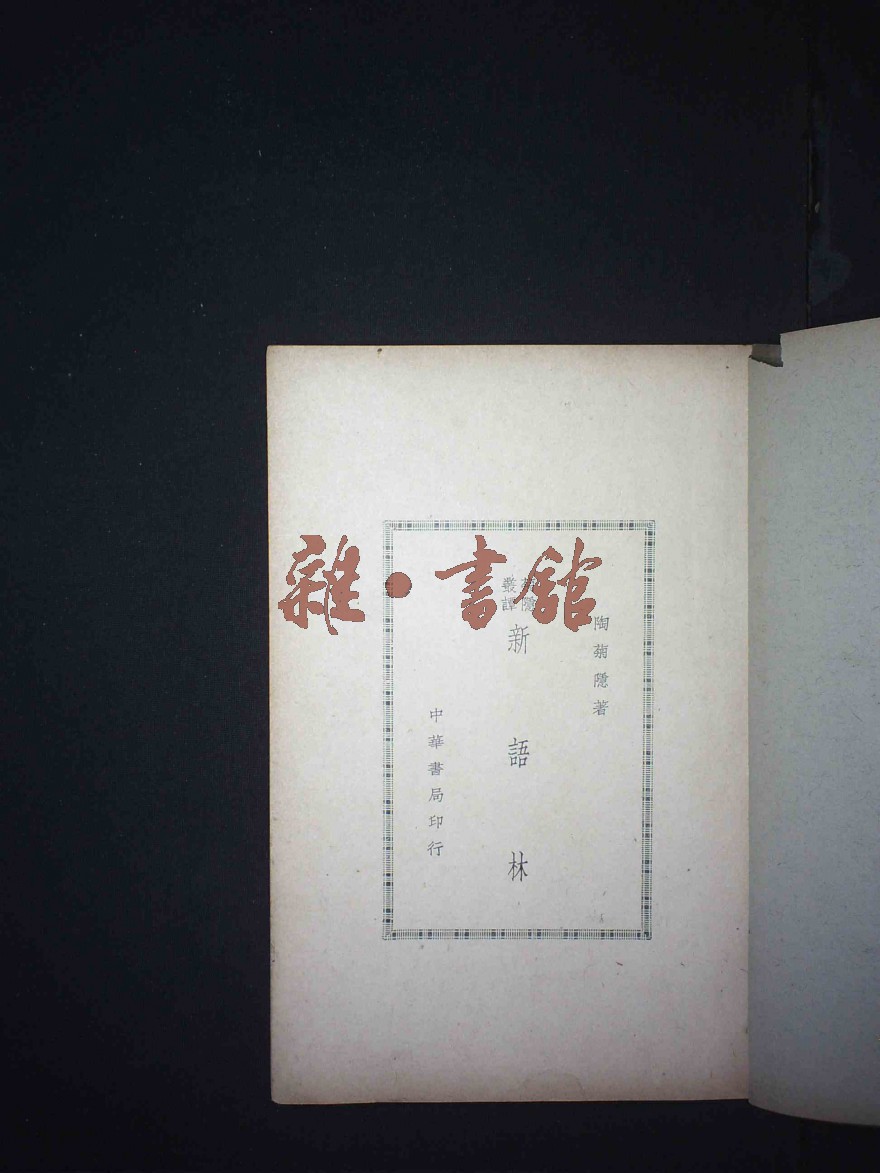 雜·書館
陶菊隱著
菊隱
叢譚
新語林
中華書局印行